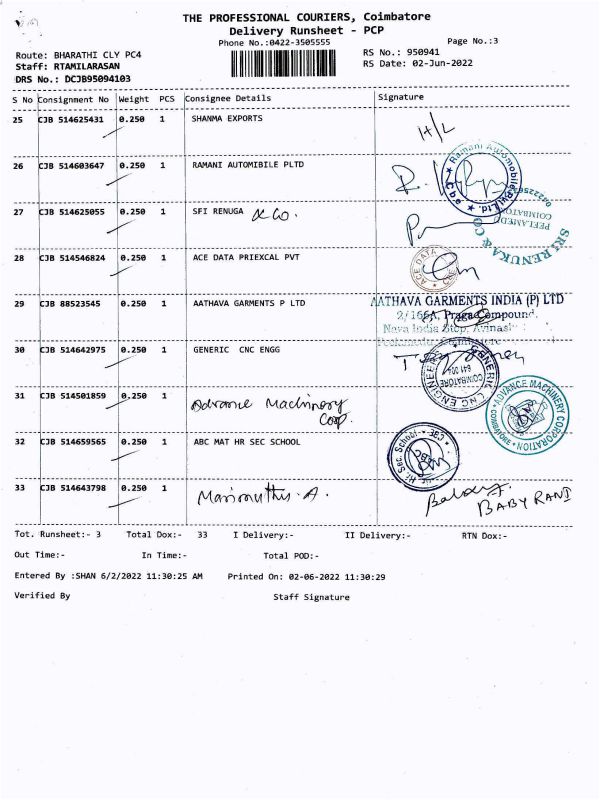 THE PROFESSIONAL COURIERS, Coimbatore
Delivery Runsheet - PCP
Phone No.:0422-3505555
Page No.:3
Route: BHARATHI CLY PC4
RS No.: 950941
Staff: RTAMILARASAN
RS Date: 02-Jun-2022
DRS No.: DCJB95094103
S No Consignment No Weight PCS Consignee Details Signature
25 CJB 514625431 0.250 1 SHANMA EXPORTS H/L
26 CJB 514603647 0.250 1 RAMANI AUTOMIBILE PLTD
Ramani Automobile Pvt. Ltd. Cbe
27 CJB 514625055 0.250 1 SFI RENUGA & Co.
PEELAMEDU
COIMBATORE
SRI RENUKA & CO
28 CJB 514546824 0.250 1 ACE DATA PRIEXCAL PVT
ACE DATA
29 CJB 88523545 0.250 1 AATHAVA GARMENTS P LTD
AATHAVA GARMENTS INDIA (P) LTD
2/166A, Praga Compound.
Nava India Stop, Avinashi
30 CJB 514642975 0.250 1 GENERIC CNC ENGG
GENERIC CNC ENGINEERING
COIMBATORE
31 CJB 514501859 0.250 1 Advance Machinery
Corp.
ADVANCE MACHINERY CORPORATION COIMBATORE
32 CJB 514659565 0.250 1 ABC MAT HR SEC SCHOOL
33 CJB 514643798 0.250 1 Marimuthu. A.
BABY RANI
Tot. Runsheet:- 3 Total Dox:- 33 I Delivery:- II Delivery:- RTN Dox:-
Out Time:- In Time:- Total POD:-
Entered By :SHAN 6/2/2022 11:30:25 AM Printed On: 02-06-2022 11:30:29
Verified By Staff Signature